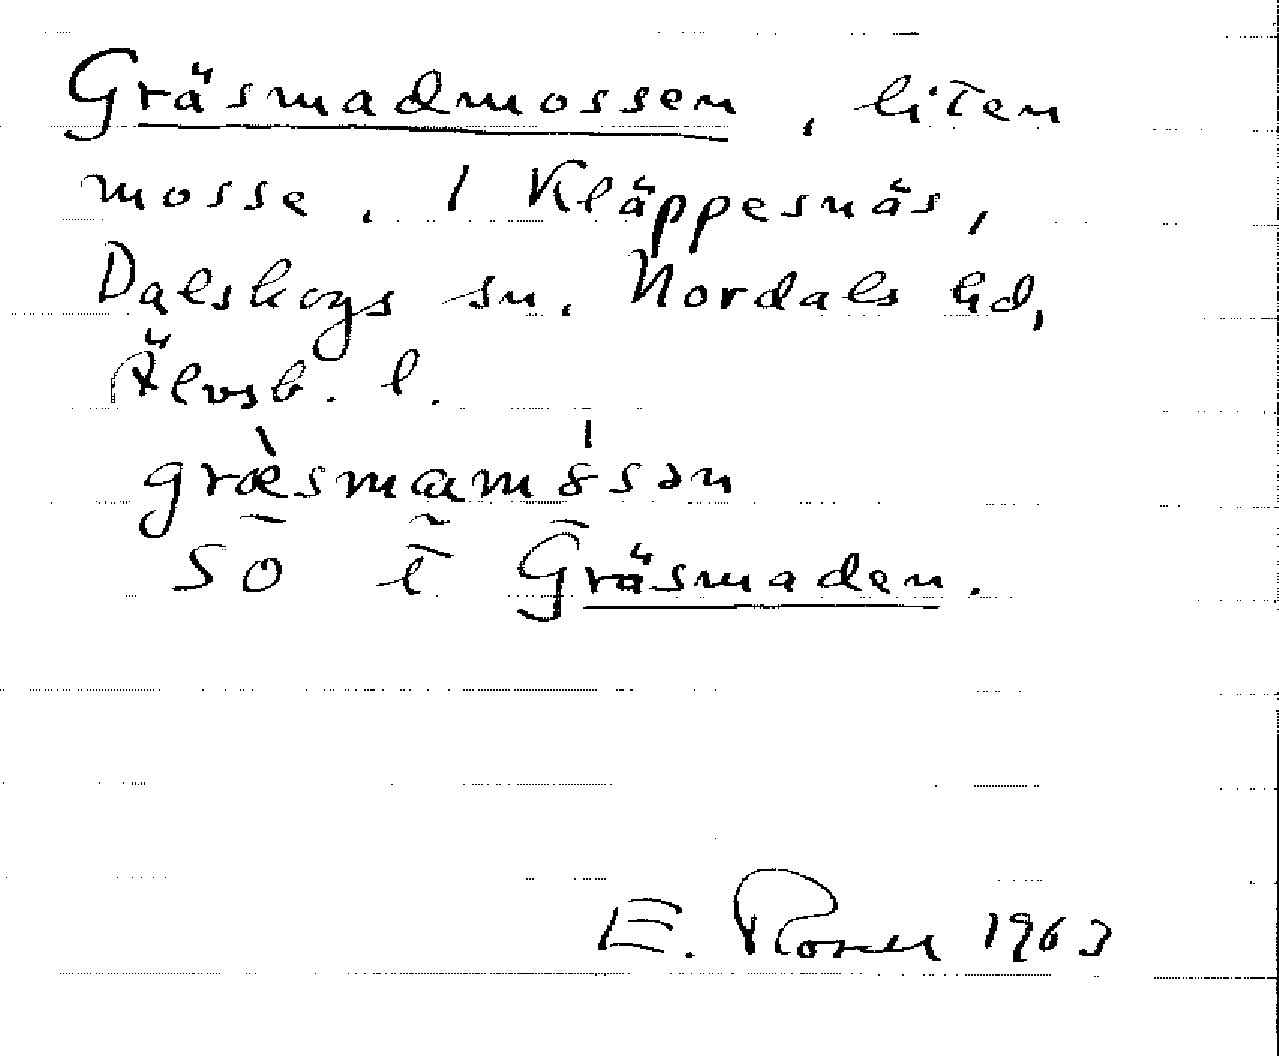 Gräsmadmossen, liten
mosse. I Kläppesnäs,
Dalskogs sn. Nordals hd,
Älvsb. l.
græ̀smamȯsən
SO l Gräsmaden.
E. Rosell 1963